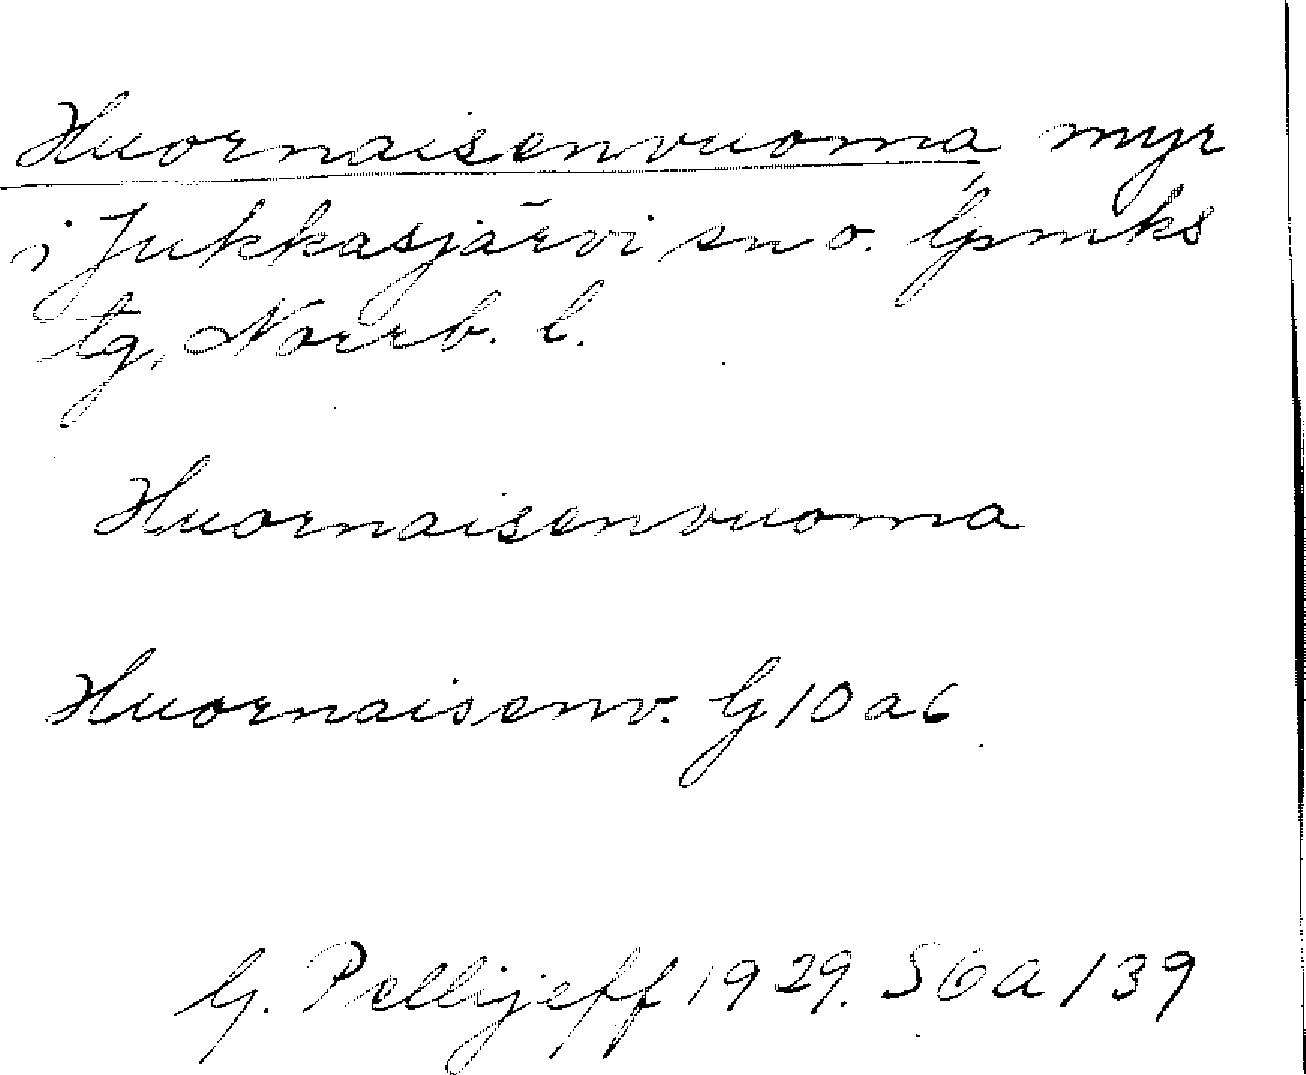 Huornaisenvuoma myr
i Jukkasjärvi sn o. lpmks
tg, Norrb. l.
Huornaisenvuoma
Huornaisenv. G 10 a 6
G. Pellijeff 1929. S 6 a / 39